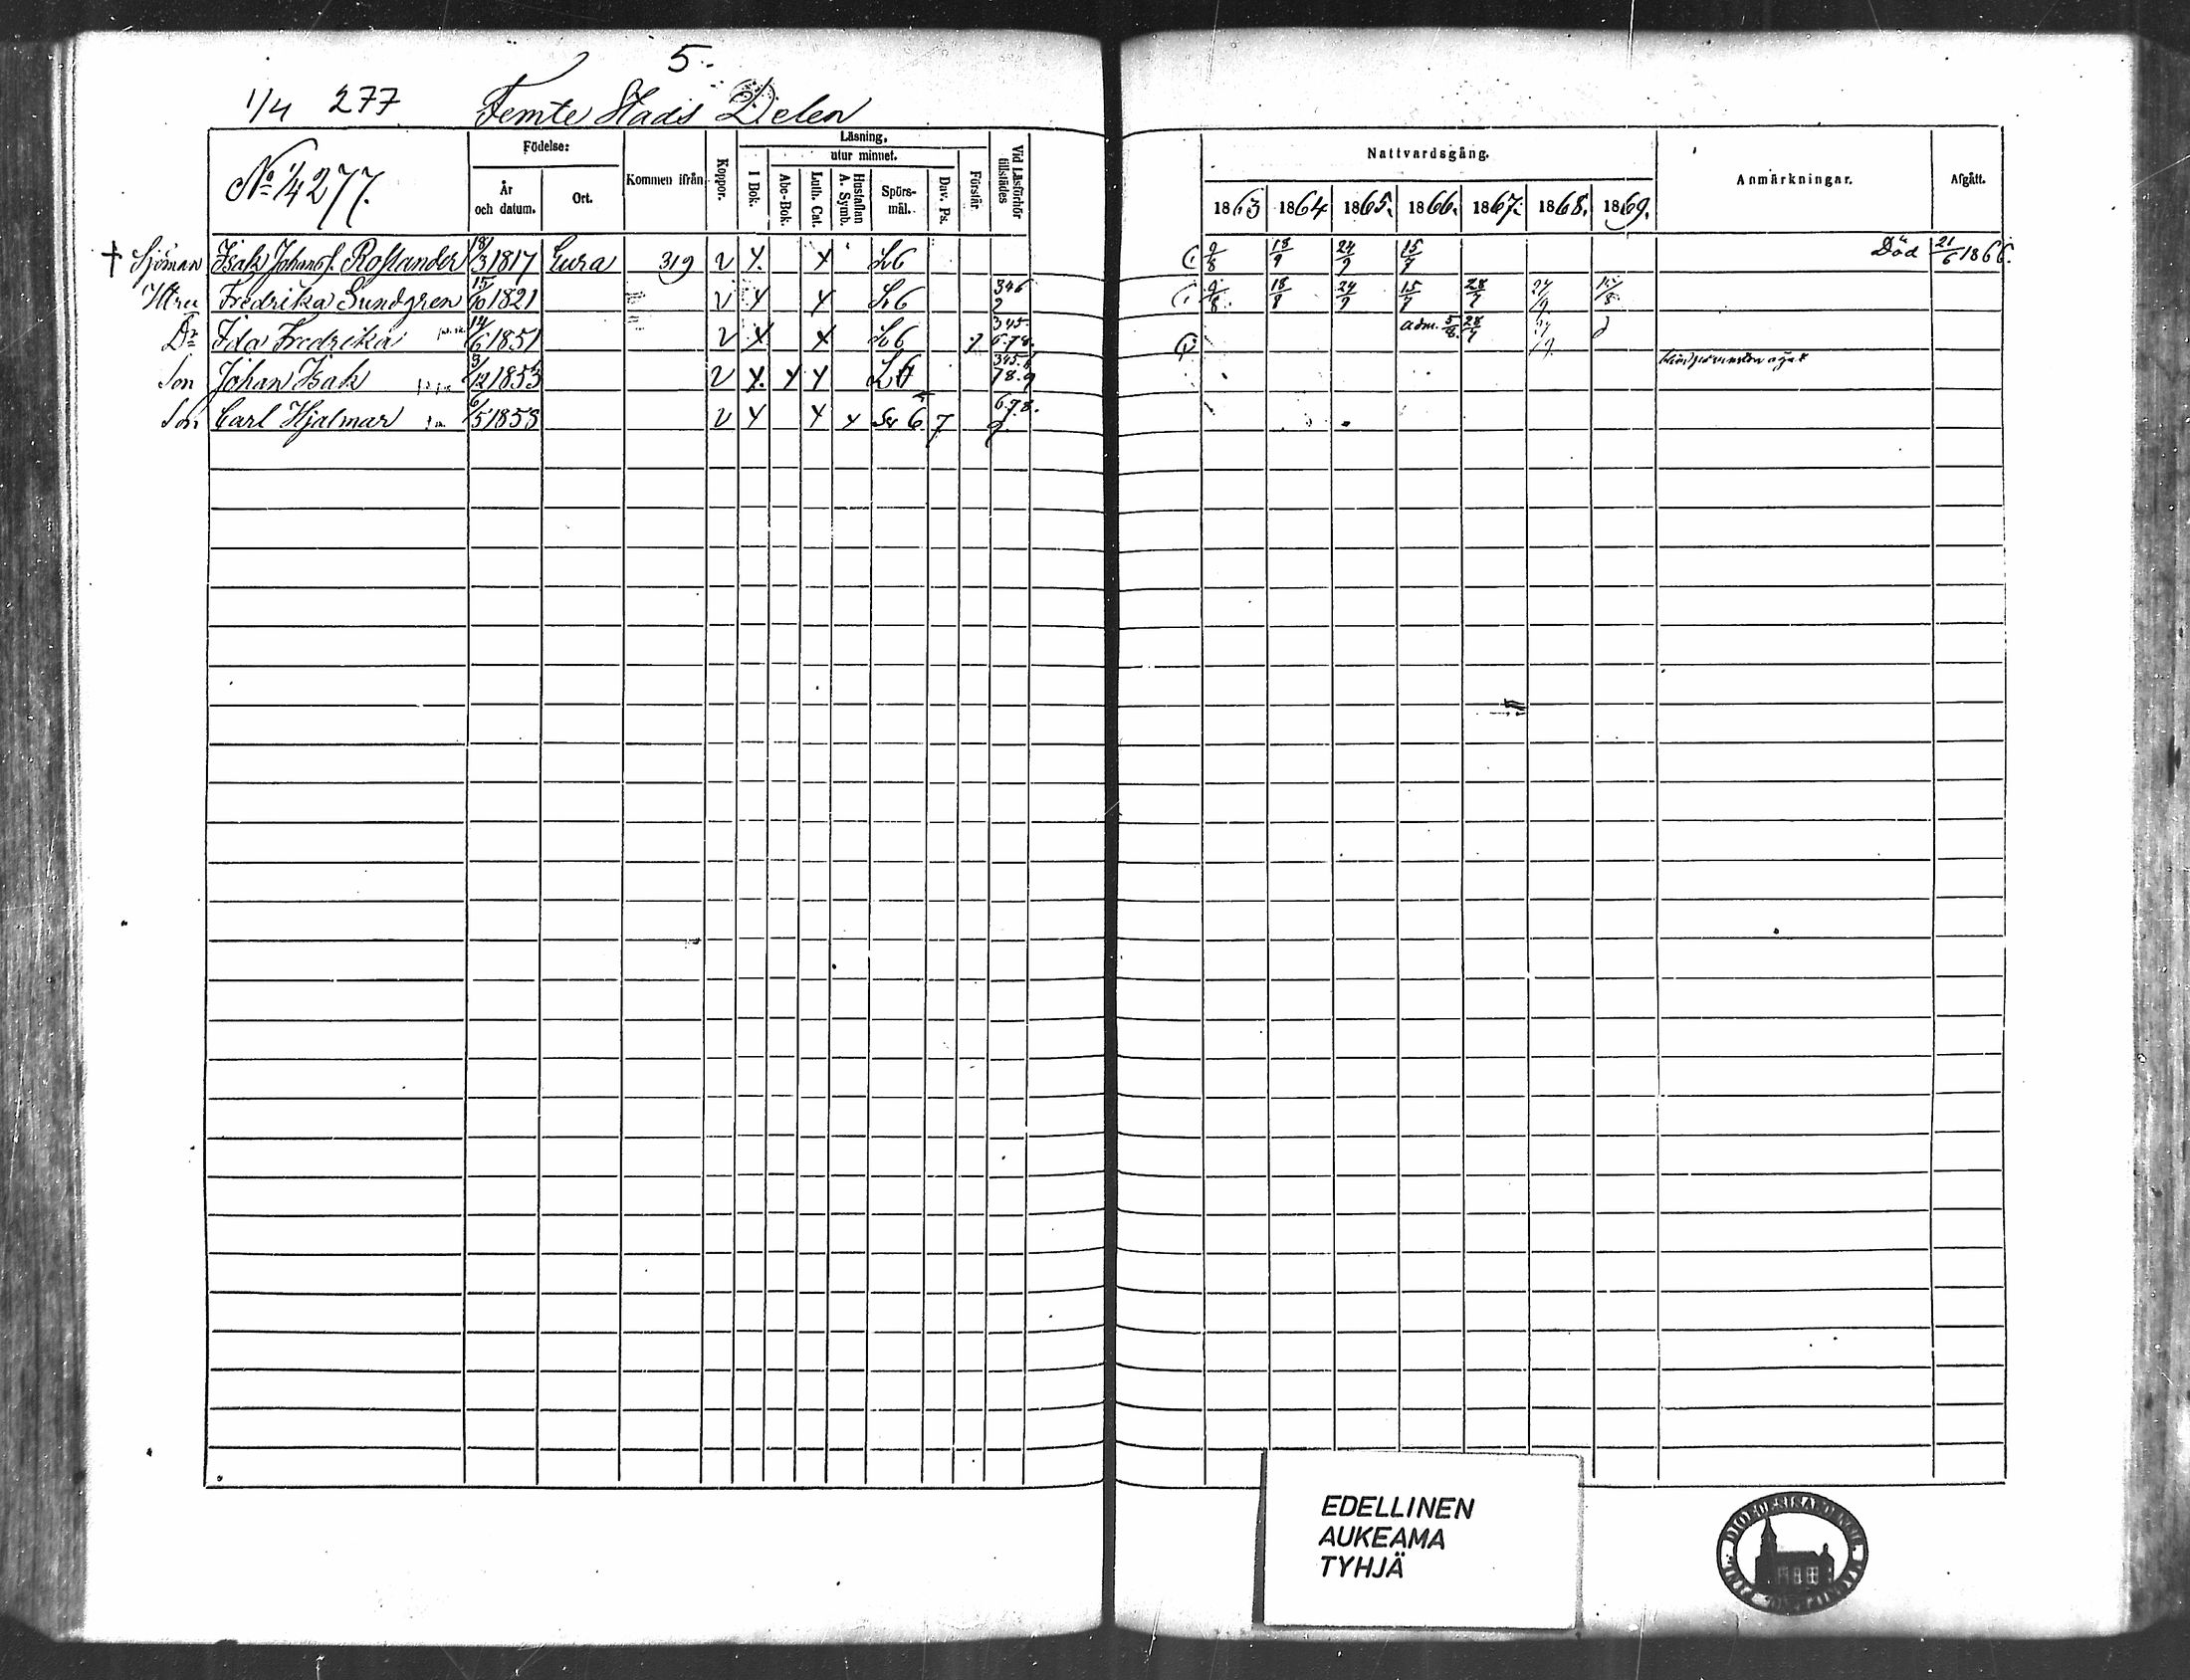 5.
1/4 277 Femte Stads Delen
No 1/4 277.
Födelse:
År och datum.
Ort.
Kommen ifrån
Koppor.
Läsning,
I Bok.
utur minnet.
Abc-Bok.
Luth. Cat.
Hustaflan A. Symb.
Spörs-mål.
Dav. Ps.
Förstår
Vid Läsförhör tillstädes
Nattvardsgång.
1863 1864 1865. 1866. 1867. 1868. 1869.
Anmärkningar.
Afgått.
† Sjöman Isak Johans. Roslander 18/3 1817 Eura 319 v 9/8 18/9 24/9 15/7 Död 21/6 1866.
Hstru Fredrika Sundgren 15/10 1821 v 346 9/8. 18/8 24/9 15/7 28/7
Dr Ida Fredrika 14/6 1851 v 345. 6.78. adm. 5/8. 28/7
Son Johan Isak 9/12 1853 v 345. 78.9
Son Carl Hjalmar 6/5 1858 v 6 7 6.7.8. 9
EDELLINEN
AUKEAMA
TYHJÄ